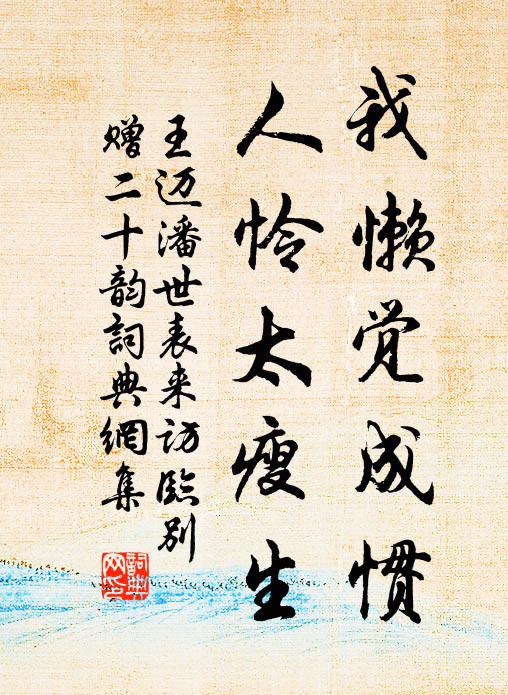 我懒觉成惯
人怜太瘦生
王迈潘世表来访临别
赠二十韵词典網集